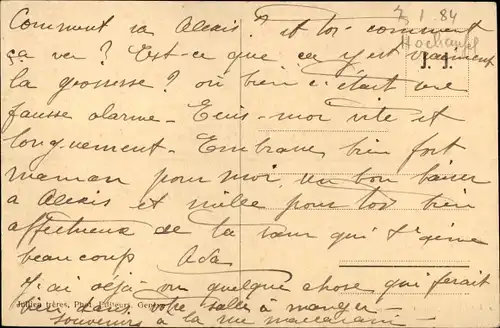 7. 1. 84
Hochaupt
Comment va Alexis? et toi comment
ça va? Est-ce que ça y est vraiment
J. J.
la grossesse? ou bien c'était une
fausse alarme - Ecris-moi vite et
longuement - Embrasse bien fort
maman pour moi, un bon baiser
à Alexis et mille pour toi bien
affectueux de ta soeur qui t'aime
beaucoup Ada
J'ai déjà vu quelque chose qui ferait
Jullien frères, Phot. Editeurs, Genève
bien dans votre salle à manger -
souvenirs à la rue